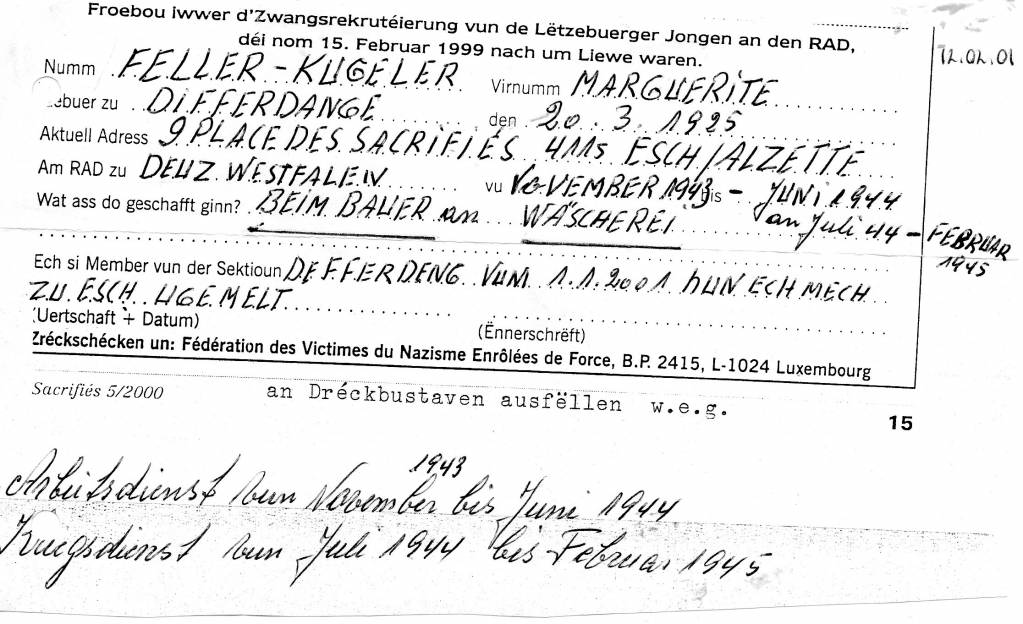 Froebou iwwer d'Zwangsrekrutéierung vun de Lëtzebuerger Jongen an den RAD,
déi nom 15. Februar 1999 nach um Liewe waren.
12.02.01
Numm FELLER-KUGELER Virnumm MARGUERITE
ebuer zu DIFFERDANGE den 20.3.1925
Aktuell Adress 9 PLACE DES SACRIFIÉS 4115 ESCH/ALZETTE
Am RAD zu DEUZ WESTFALEN vu NOVEMBER 1943 bis - JUNI 1944
Wat ass do geschafft ginn? BEIM BAUER an WÄSCHEREI an Juli 44 - FEBRUAR 1945
Ech si Member vun der Sektioun DEFFERDENG VUM 1.1.2001 hUN ECH MECH
ZU ESCH UGEMELT
(Uertschaft + Datum) (Ënnerschrëft)
Zréckschécken un: Fédération des Victimes du Nazisme Enrôlées de Force, B.P. 2415, L-1024 Luxembourg
Sacrifiés 5/2000 an Dréckbustaven ausfëllen w.e.g.
15
Arbeitsdienst vun November 1943 bis Juni 1944
Kriegsdienst vun Juli 1944 bis Februar 1945